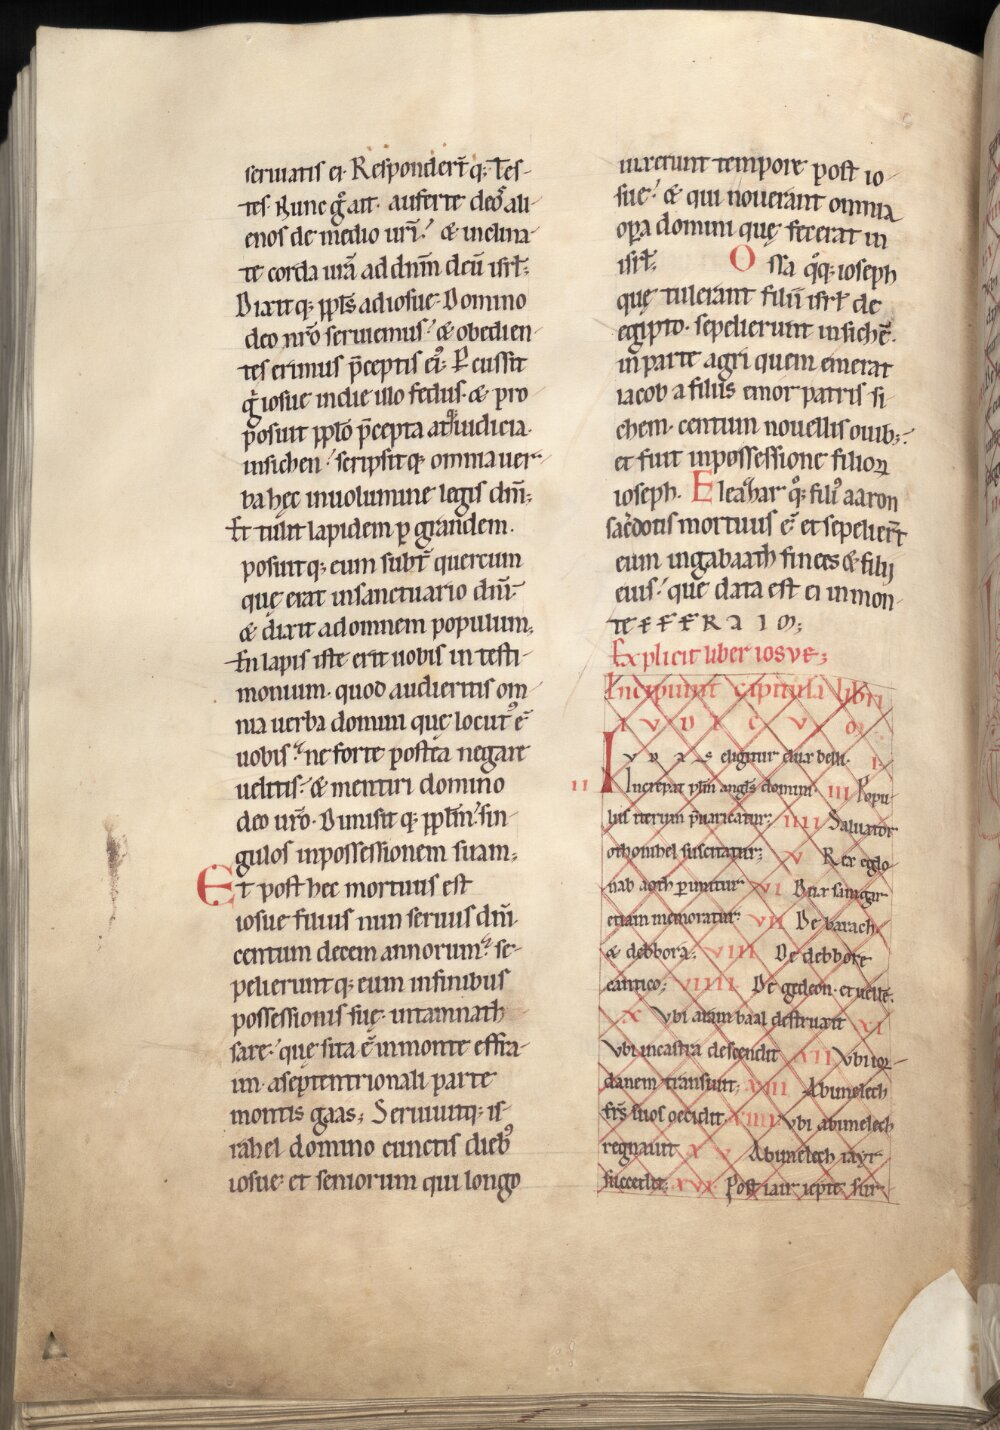 seruiatis ei. Responder̄t q; tes-
tes. Nunc gͦ ait. auferte deoſ ali-
enos de medio urī. & inclina-
te corda urā ad dn̄m deū isrł;
Dixit q; ppłs ad iosue. Domino
deo nr̄o seruiemus. & obedien-
tes erimus p̄ceptis eiꝰ. Pcussit
gͦ iosue in die illo fedus. & pro
posuit ppło p̄cepta atq; iudicia.
insichen. scripsit q; omnia uer-
ba hęc inuolumine legis dn̄i;
Et tulit lapidem p grandem.
posuit q; eum subt̄ quercum
quę erat insanctuario dn̄i.
& dixit ad omnem populum;
En lapis iste erit uobis in testi-
monium. quod audieritis om-
nia uerba domini quę locutꝰ ē
uobis. ne forte postea negare
uelitis. & mentiri domino
deo ur̄o. Dimisit q; ppłm. sin-
gulos inpossessionem suam;
Et post hec mortuus est
iosue filius nun seruus dn̄i.
centum decem annorum. se-
pelierunt q; eum infinibus
possessionis suę. intamnath
sare. que sita ē inmonte effra-
im. aseptentrionali parte
montis gaas; Seruiuitq; is-
rahel domino cunctis diebꝰ
iosue. et seniorum qui longo
uixerunt tempore post io-
sue. & qui nouerant omnia
opa domini quę fecerat in
isrł; Ossa q̄q; ioseph
quę tulerant filii isrł de
egipto. sepelierunt insichē.
in parte agri quem emerat
iacob a filiis emor patris si-
chem. centum nouellis ouib;.
et fuit inpossessione filioꝝ
ioseph. Eleazhar q̄; filiꝰ aaron
sac̄dotis mortuus ē. et sepelier̄t
eum ingabaath finees & filij
eius. que data est ei in mon-
te EFFRAIM;
Explicit liber iosue;
Incipiunt capitula libri
IUDICUM
Iudas eligitur dux belli. I.
II Increpat ꝓłm angłs domini. III Popu-
lus iterum p̄uaricatur; IIII Saluator
othonihel suscitatur; V Rex eglo
nab aoth pimitur. VI Dux samgar
etiam memoratur. VII De barach.
& debbora. VIII De debbore
cantico; VIIII De gedeon. et uelle.
X Vbi aram baal destruxit XI
Vbi incastra descendit XII Vbi ior-
danem transiuit; XIII Abimelech
frs̄ suos occidit. XIIII Vbi abimelech
regnauit XV Abimelech iayr
succedit. XVI Post iair iepte sur-